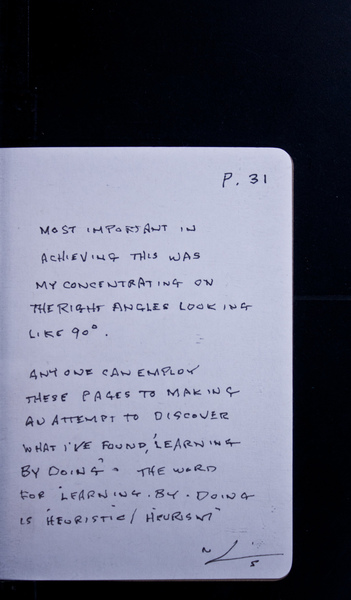 P. 31
MOST IMPORTANT IN
ACHIEVING THIS WAS
MY CONCENTRATING ON
THE RIGHT ANGLES LOOKING
LIKE 90°.
ANYONE CAN EMPLOY
THESE PAGES TO MAKING
AN ATTEMPT TO DISCOVER
WHAT I'VE FOUND, "LEARNING
BY DOING". THE WORD
FOR "LEARNING-BY-DOING
IS "HEURISTIC / HEURISM"
N
5